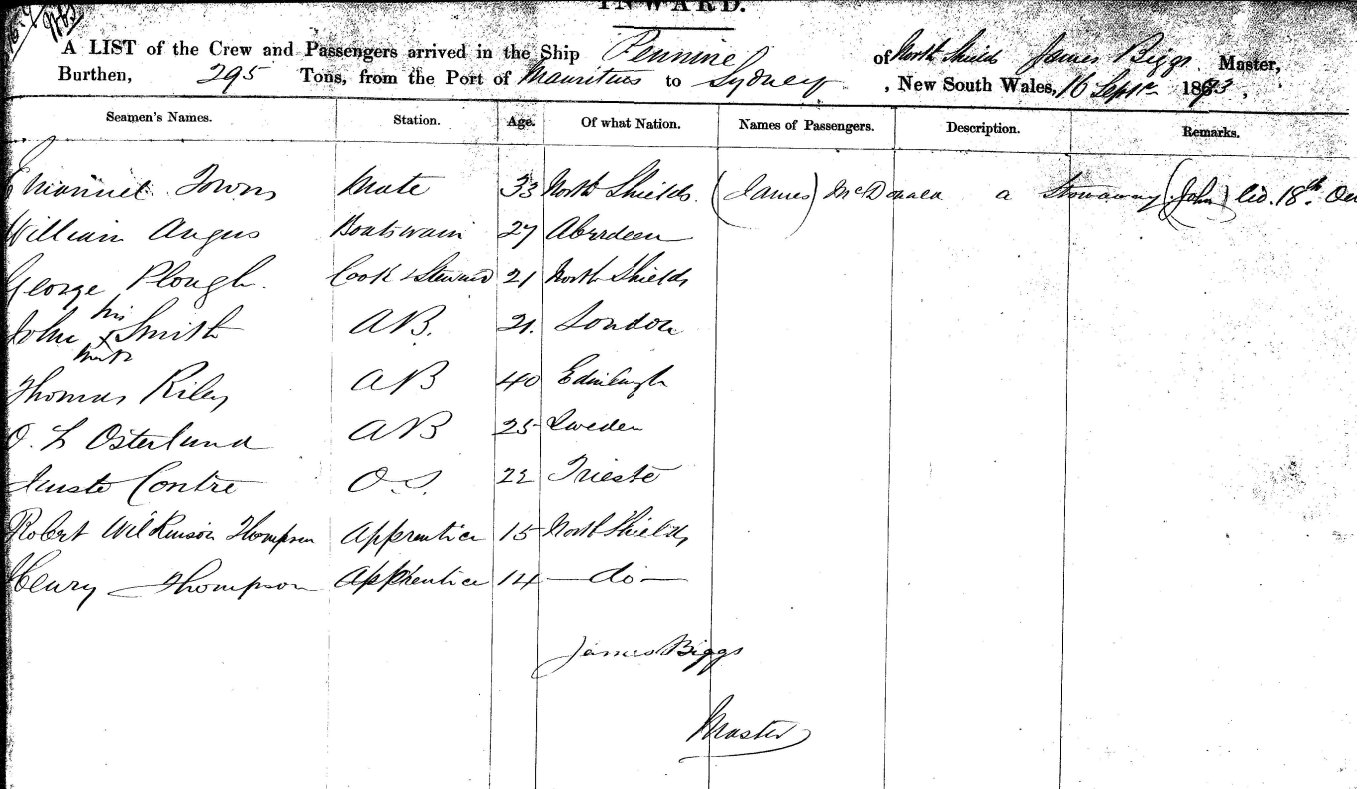 INWARD.
A LIST of the Crew and Passengers arrived in the Ship Pennine of North Shields James Biggs Master,
Burthen, 295 Tons, from the Port of Mauritius to Sydney, New South Wales, 16 Septr 1873,
Seamen's Names. Station. Age. Of what Nation. Names of Passengers. Description. Remarks.
Emanuel Towns Mate 33 North Shields (James) McDonald a Stowaway (John) 18th
William Angus Boatswain 27 Aberdeen
George Plough Cook & Steward 21 North Shields
his
John x Smith AB. 21. London
mark
Thomas Riley AB 40 Edinburgh
O. L Osterlund AB 25 Sweden
Contre O.S. 22 Trieste
Robert Wilkinson Thompson Apprentice 15 North Shields
Henry Thompson Apprentice 14 - do -
James Biggs
Master